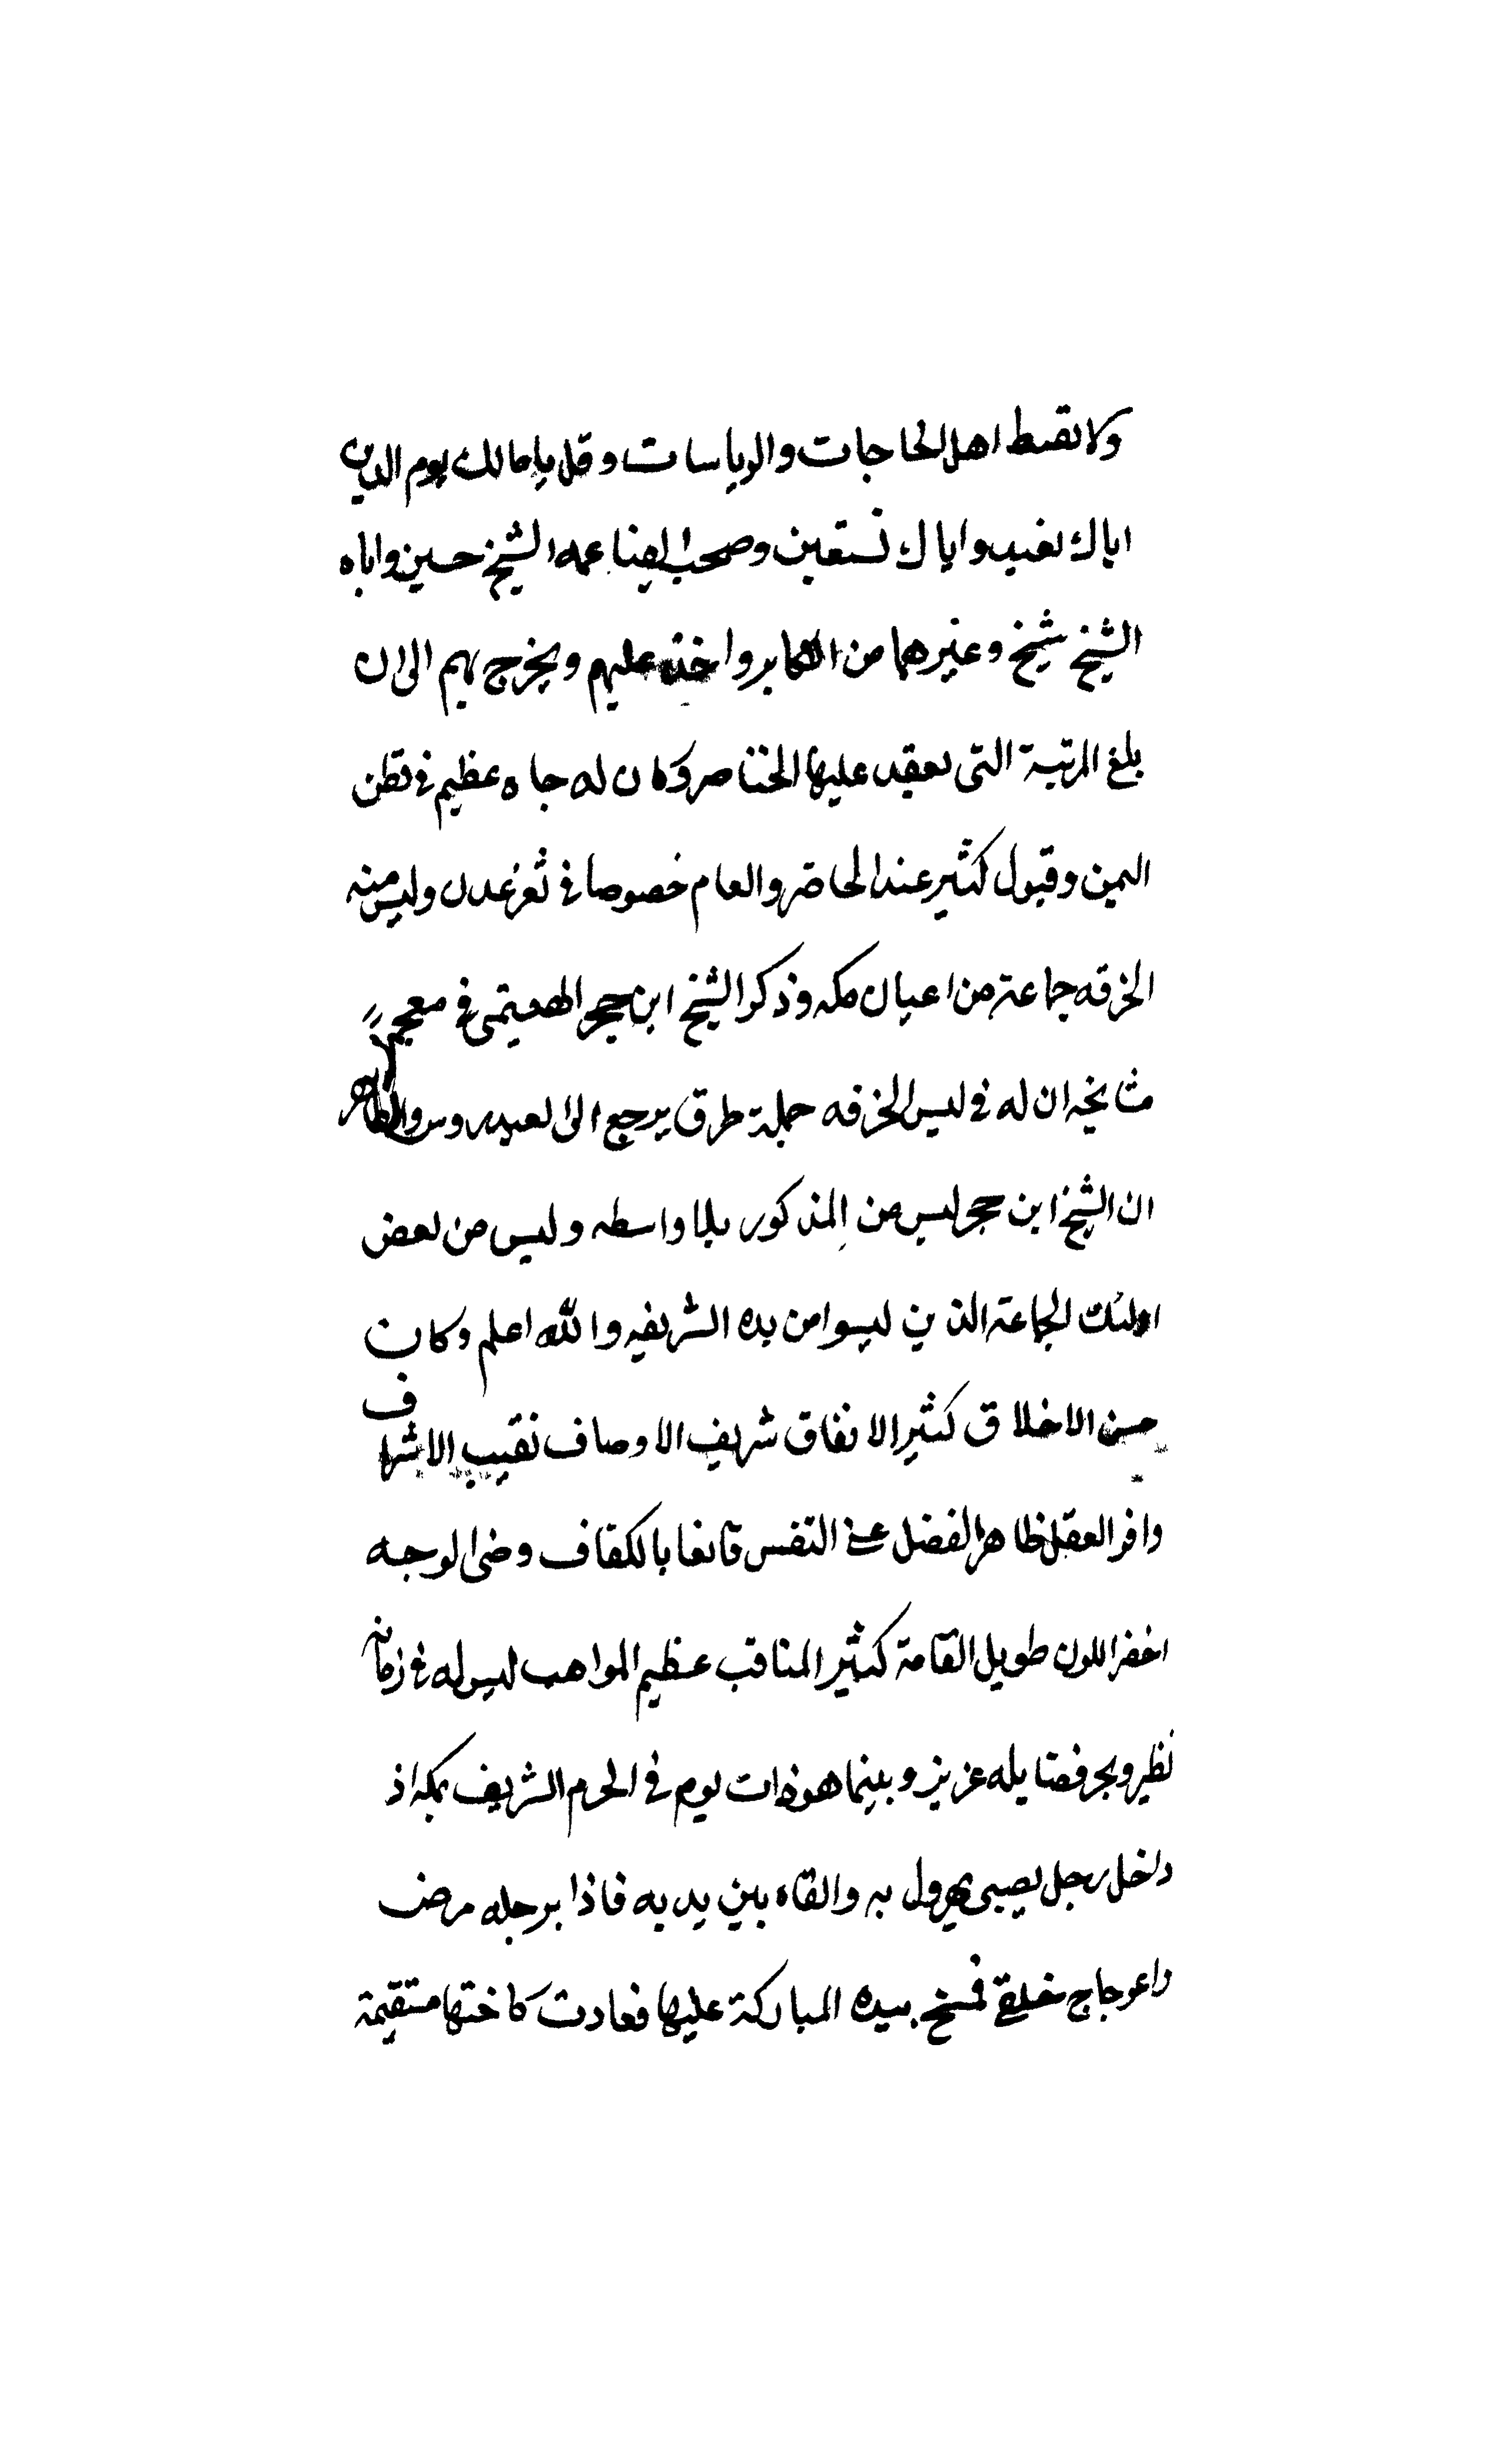 ولا تقسط اهل الحاجات والرياسات وقل يا مالك يوم الدين
اياك نعبد واياك نستعين وصحب ايضا عمه الشيخ حسين واباه
الشيخ شيخ وغيرهما من الاكابر واخذ عليهم ويخرج بهم الى ان
بلغ المرتبة التى تعقد عليها الخناصر وكان له جاه عظيم فى قطن
اليمن وقبول كثير عند الخاص والعام خصوصا فى ثغر عدن ولبس منه
الخرقه جماعة من اعيان مكه وذكر الشيخ ابن حجر الهيتمى فى معجم
مشايخه ان له فى لبس الخرقه جملة طرق يرجع الى العيدروس والظاهر
ان الشيخ ابن حجر لبس من المذكور بلا واسطه ولبس من بعض
اولئك الجماعة الذين لبسوا من يده الشريفه والله اعلم وكان
حسن الاخلاق كثير الانفاق شريف الاوصاف نقيب الاشراف
وافر العقل ظاهر الفضل غنى النفس قانعا بالكفاف وضى الوجه
اخضر اللون طويل القامة كثير المناقب عظيم المواهب ليس له فى زمانه
نظير وبحر فضايله غزير وبينما هو ذات يوم فى الحرم الشريف بمكه اذ
داخل رجل بصبى يهرول به والقاه بين يديه فاذا برجله مرض
واعوجاج خلقى فمسح بيده المباركة عليها فعادت كاختها مستقيمة